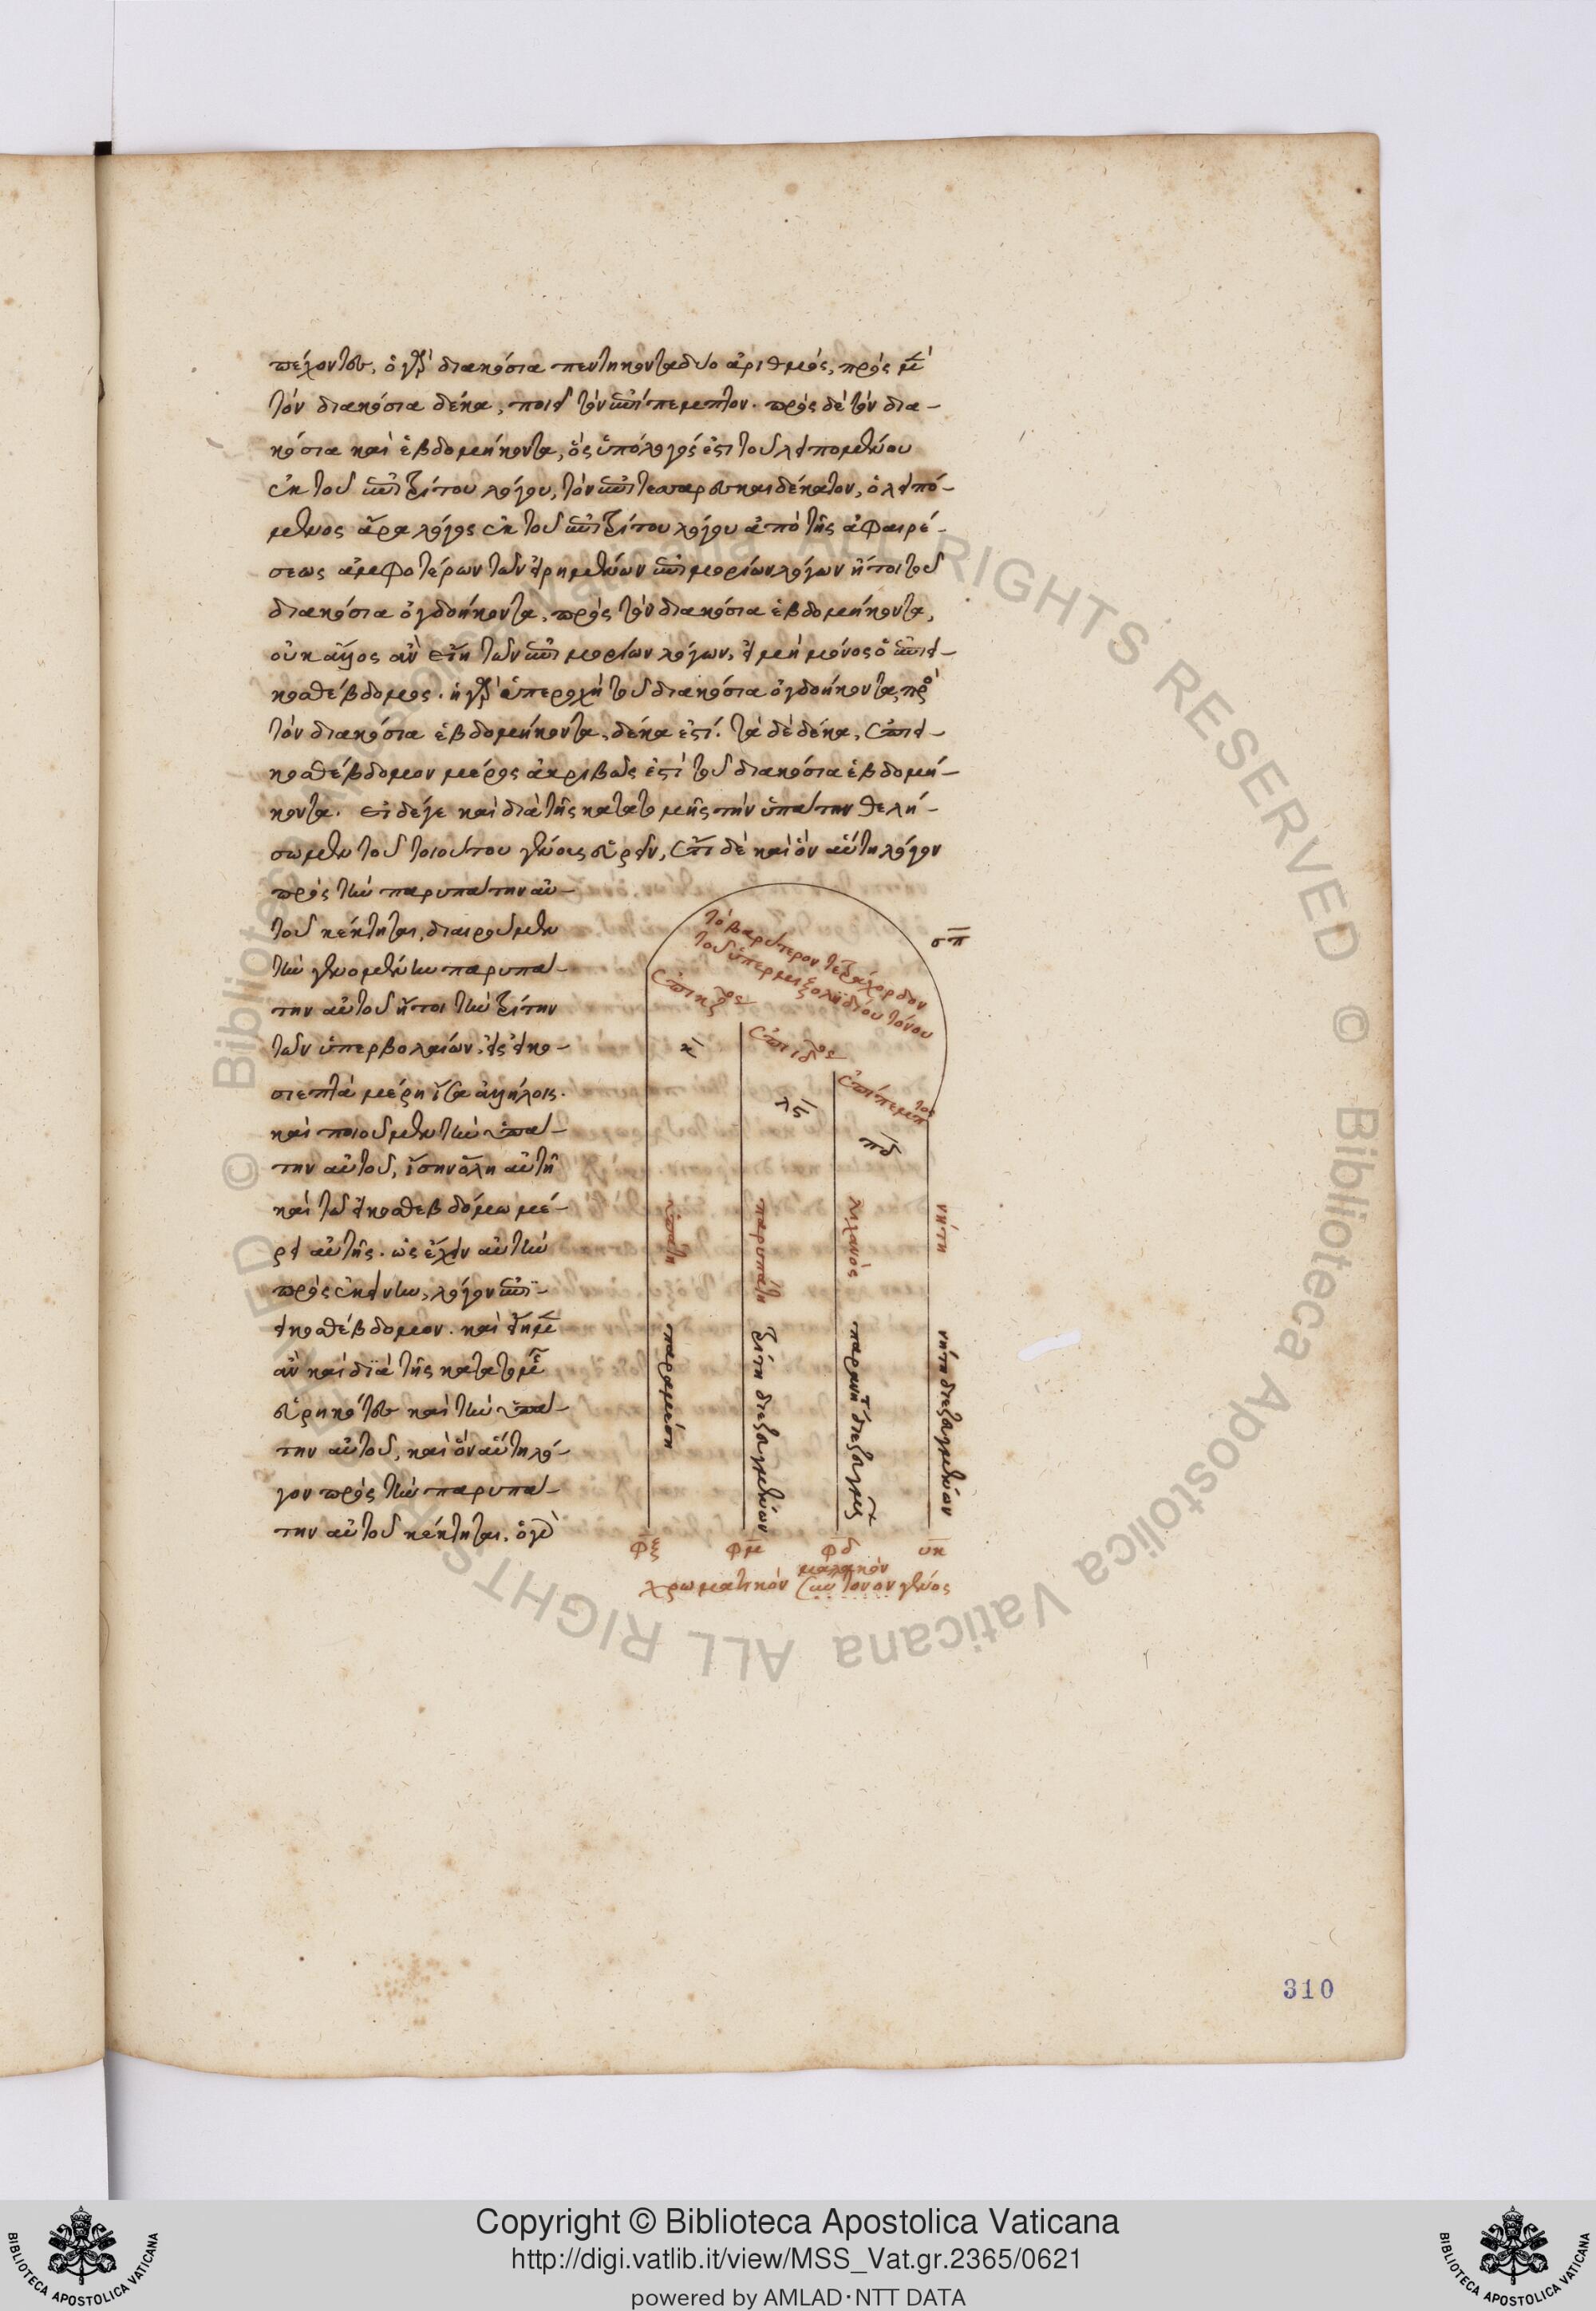 πέχοντος. ὁ γὰρ διακόσια πεντηκονταδύο ἀριθμὸς, πρὸς μὲν
τὸν διακόσια δέκα, ποιεῖ τὸν ἐπίπεμπτον. πρὸς δὲ τὸν δια-
κόσια καὶ ἑβδομήκοντα, ὅς ὑπόλογός ἐστι τοῦ λειπομένου
ἐκ τοῦ ἐπιτρίτου λόγου, τὸν ἐπιτεσσαρεσκαιδέκατον, ὁ λειπό-
μενος ἄρα λόγος ἐκ τοῦ ἐπιτρίτου λόγου ἀπὸ τῆς ἀφαιρέ-
σεως ἀμφοτέρων τῶν εἰρημένων ἐπιμορίων λόγων ἤτοι τοῦ
διακόσια ὀγδοήκοντα, πρὸς τὸν διακόσια ἑβδομήκοντα,
οὐκ ἄλλος ἂν εἴη τῶν ἐπιμορίων λόγων, εἰ μὴ μόνος ὁ ἐπιει-
κοσθέβδομος. ἡ γὰρ ὑπεροχὴ τοῦ διακόσια ὀγδοήκοντα, πρὸς
τὸν διακόσια ἑβδομήκοντα, δέκα ἐστί. τὰ δὲ δέκα, ἐπιει-
κοσθέβδομον μέρος ἀκριβῶς ἐστὶ τοῦ διακόσια ἑβδομή-
κοντα. εἰ δέ γε καὶ διὰ τῆς κατατομῆς τὴν ὑπάτην θελή-
σωμεν τοῦ τοιούτου γένους εὑρεῖν, ἔτι δὲ καὶ ὃν αὕτη λόγον
πρὸς τὴν παρυπάτην αὐ-
τοῦ κέκτηται, διαιροῦμεν
τὴν γενομένην παρυπά-
την αὐτοῦ ἤτοι τὴν τρίτην
τῶν ὑπερβολαίων, εἰς εἰκο-
σιεπτὰ μέρη ἴσα ἀλλήλοις.
καὶ ποιοῦμεν τὴν ὑπά-
την αὐτοῦ, ἴσην ὅλη αὐτῆ
καὶ τῶ εἰκοσθεβδόμω μέ-
ρει αὐτῆς. ὡς ἔχειν αὐτὴν
πρὸς ἐκείνην, λόγον ἐπι-
εικοσθέβδομον. καὶ εἴημεν
ἂν καὶ διὰ τῆς κατατομῆς
εὑρηκότες καὶ τὴν ὑπά-
την αὐτοῦ, καὶ ὃν αὕτη λό-
γον πρὸς τὴν παρυπά-
την αὐτοῦ κέκτηται. ὁ γὰρ
τὸ βαρύτερον τετράχορδον
τοῦ ὑπερμιξολυδίου τόνου
σπ
ἐπικζος
ἐπιιδος
ἐπίπεμπτος
κ
λς
πδ
ὑπάτη
παρυπάτη
λιχανὸς
νήτη
παραμέση
τρίτη διεζευγμένων
παρανήτη διεζευγμένων
νήτη διεζευγμένων
φξ φμ φδ υκ
μαλακὸν
χρωματικὸν σύντονον γένος
310
Copyright © Biblioteca Apostolica Vaticana
http://digi.vatlib.it/view/MSS_Vat.gr.2365/0621
powered by AMLAD·NTT DATA
BIBLIOTECA APOSTOLICA VATICANA
BIBLIOTECA APOSTOLICA VATICANA
© Biblioteca Apostolica Vaticana ALL RIGHTS RESERVED © Biblioteca Apostolica Vaticana ALL RIGHTS RESERVED